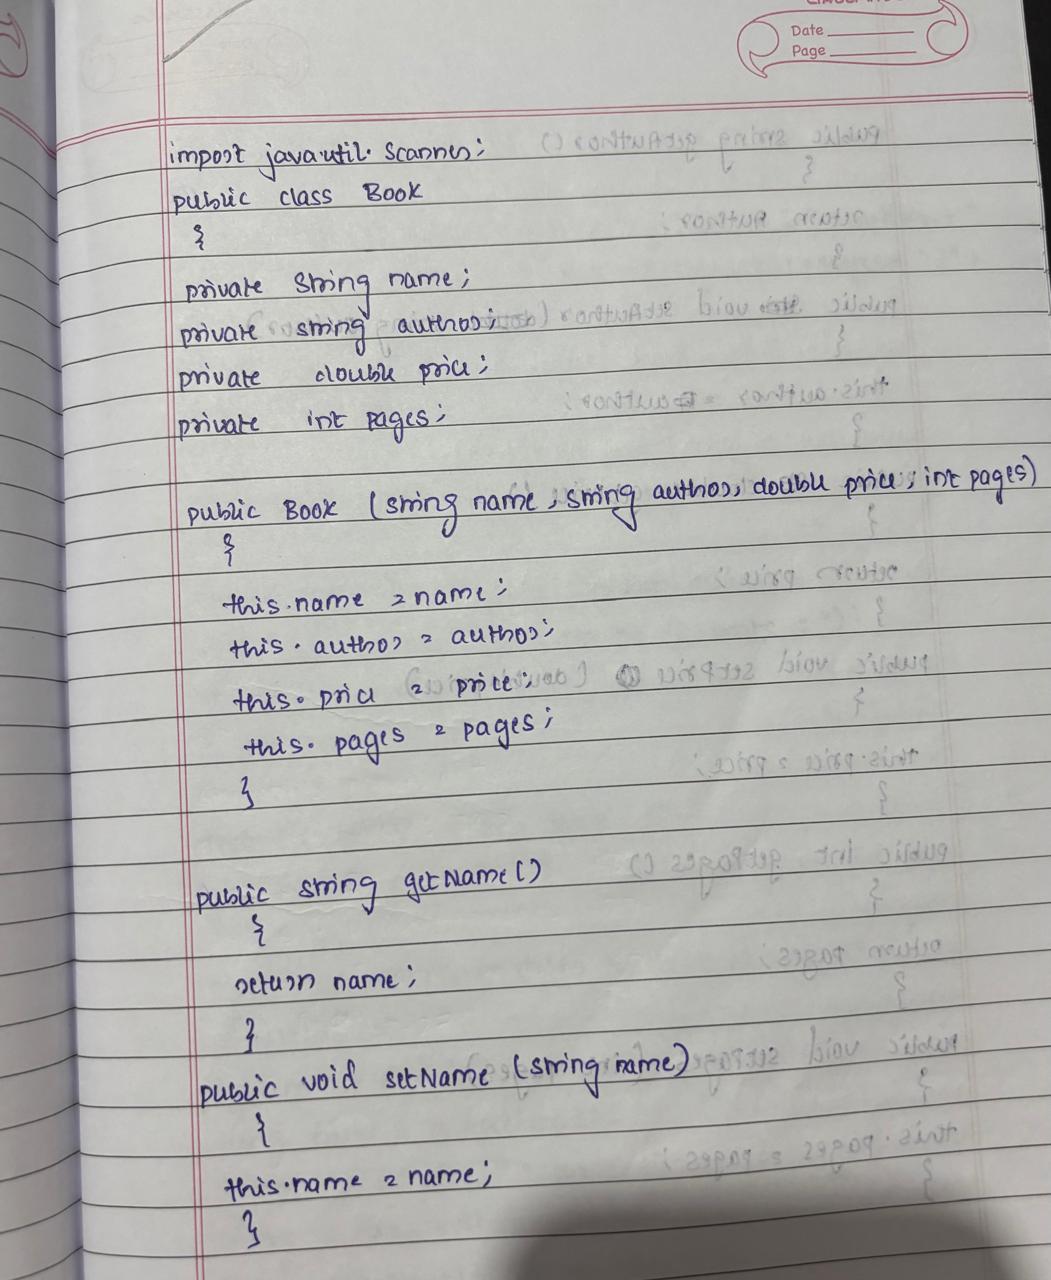 Date
Page
import java.util.Scanner;
public class Book
{
private String name;
private string author;
private double price;
private int pages;
public Book (string name, string author, double price, int pages)
{
this.name = name;
this.author = author;
this.price = price;
this.pages = pages;
}
public string getName()
{
return name;
}
public void setName (string name)
{
this.name = name;
}